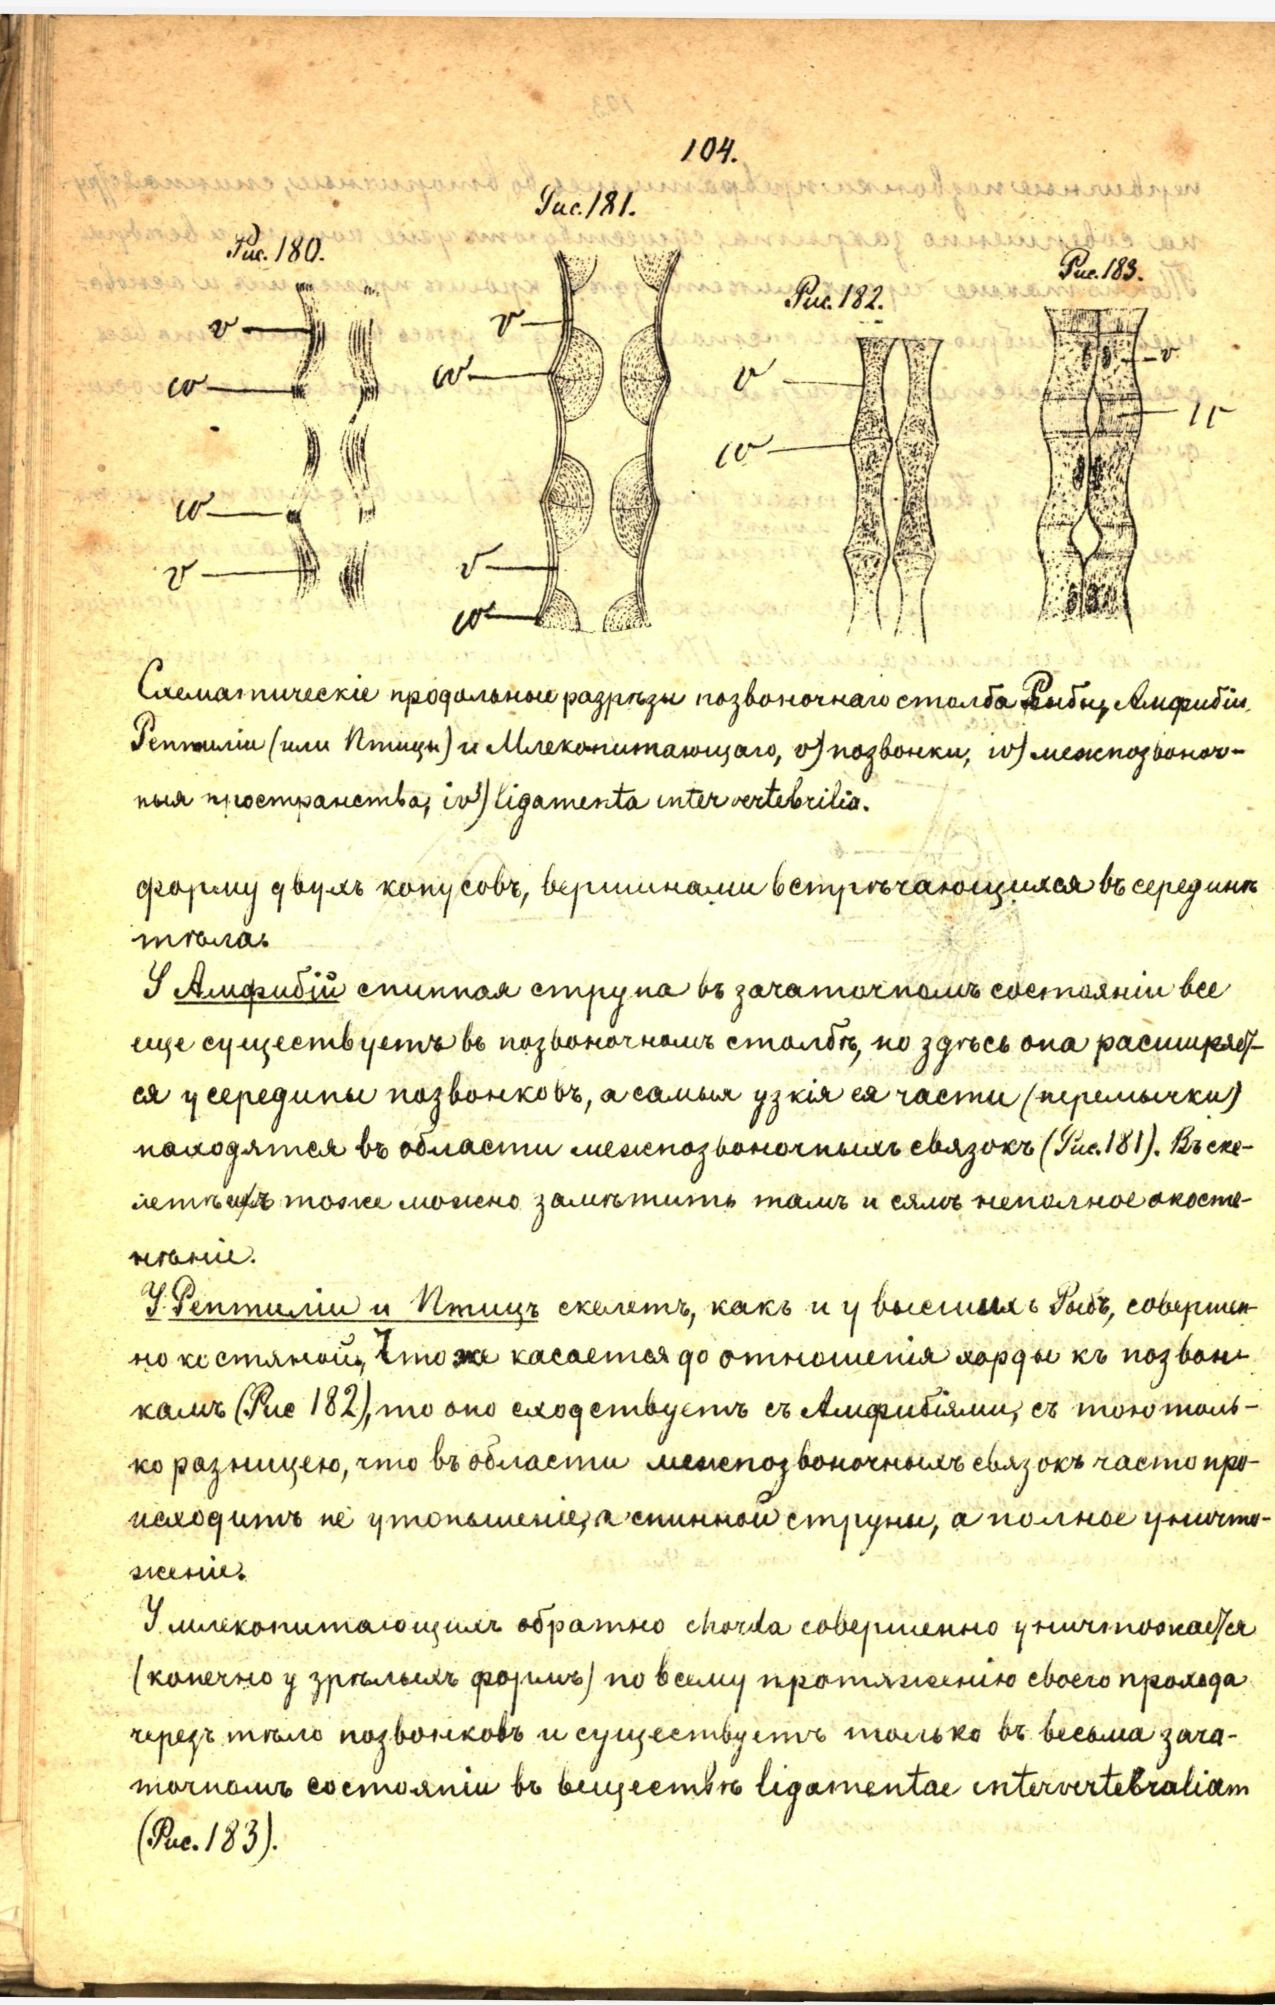 104.
Рис. 180.
Рис. 181.
Рис. 182.
Рис. 183.
v
iv
iv
v
v
iv
v
iv
v
iv
v
iv
Схематическіе продольные разрѣзы позвоночнаго столба Рыбы, Амфибіи,
Рептиліи (или Птицы) и Млекопитающаго, v) позвонки, iv) межпозвоноч-
ныя пространства, iv') ligamenta intervertebrilia.
форму двухъ конусовъ, вершинами встрѣчающихся въ серединѣ
тѣла.
У Амфибій спинная струна въ зачаточномъ состояніи все
еще существуетъ въ позвоночномъ столбѣ, но здѣсь она расширяет-
ся у середины позвонковъ, а самыя узкія ея части (перемычки)
находятся въ области межпозвоночныхъ связокъ (Рис. 181). Въ ске-
летѣ ихъ тоже можно замѣтить тамъ и сямъ неполное окосте-
нѣніе.
У Рептиліи и Птицъ скелетъ, какъ и у высшихъ Рыбъ, совершен-
но костяной, Что же касается до отношенія хорды къ позвон-
камъ (Рис 182), то оно сходствуетъ съ Амфибіями, съ тою толь-
ко разницею, что въ области межпозвоночныхъ связокъ часто про-
исходитъ не утоньшеніе, спинной струны, а полное уничто-
женіе.
У млекопитающихъ обратно chorda совершенно уничтожается
(конечно у зрѣлыхъ формъ) по всему протяженію своего прохода
черезъ тѣло позвонковъ и существуетъ только въ весьма зача-
точномъ состояніи въ веществѣ ligamentae intervertebraliam
(Рис. 183).